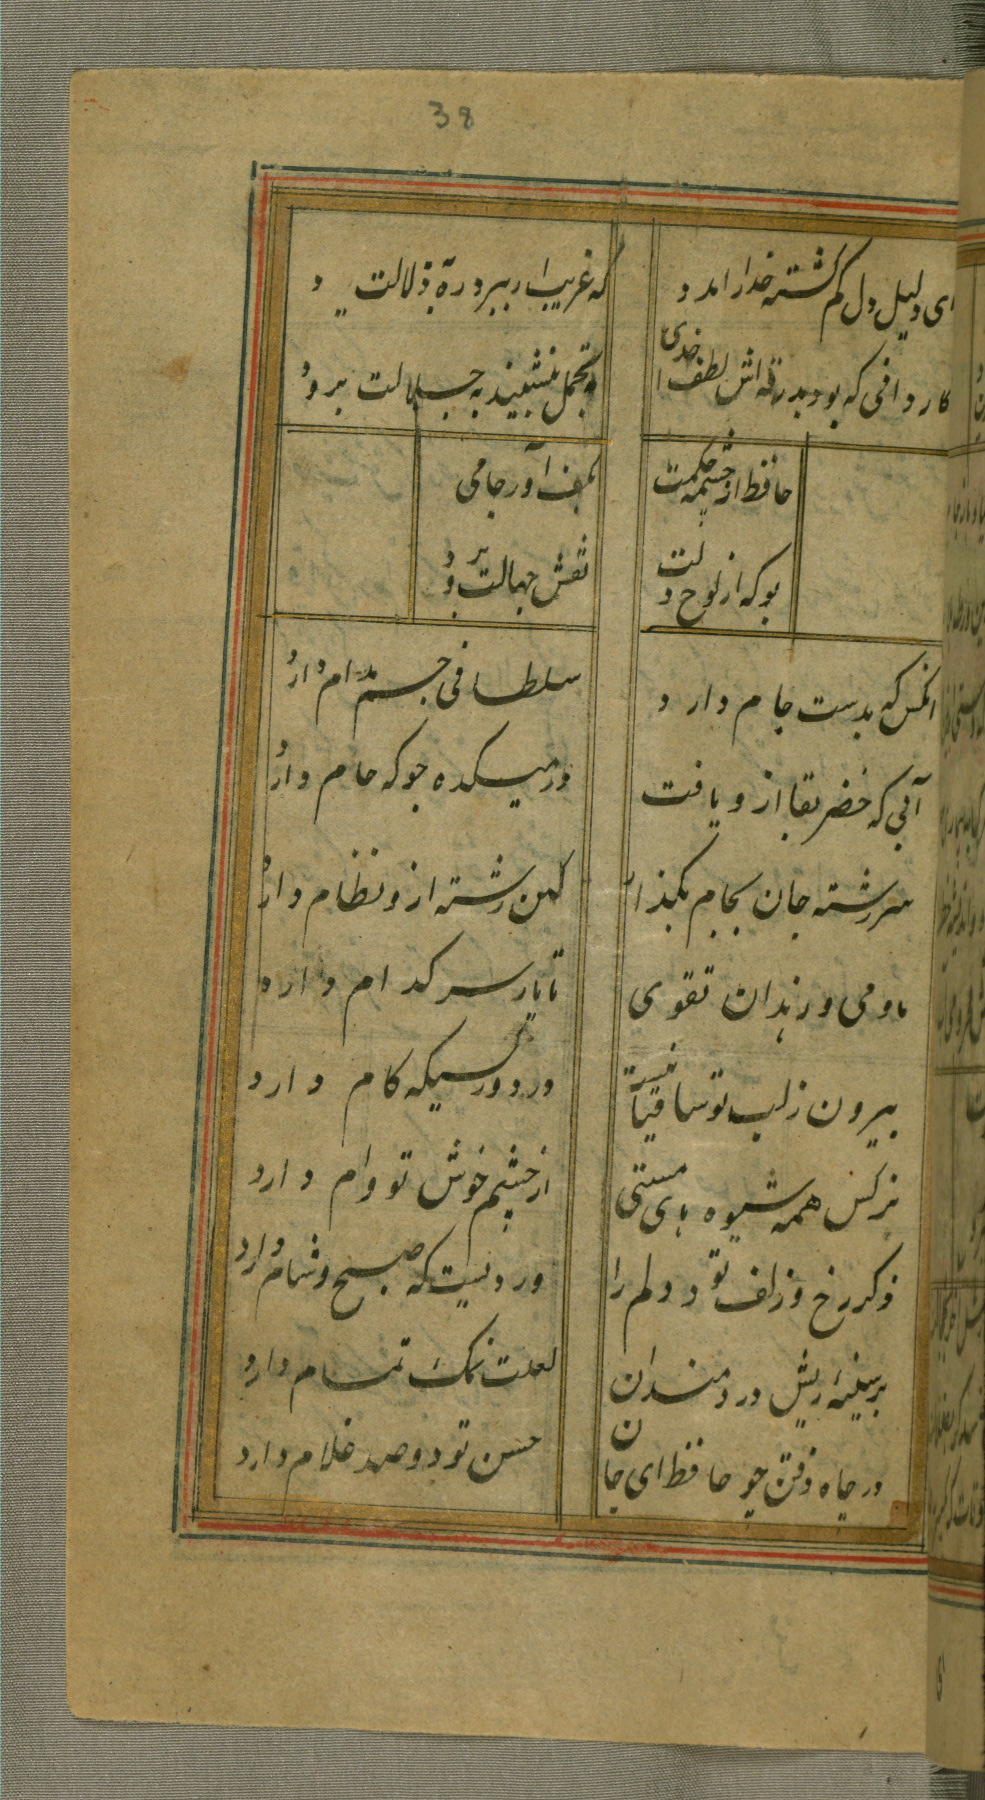 38
ای دلیل دل کم کشته خدارا مدد
که غریب ار نبرد ره بدلالت برود
کاروانی که بود بدرقه اش لطف خدای
به تجمل بنشیند به جلالت برود
حافظ از چشمه حکمت
بکف آور جامی
بو که از لوح دلت
نقش جهالت برود
انکس که بدست جام دارد
سلطانی جم مدام دارد
آبی که خضر بقا ازو یافت
در میکده جو که جام دارد
سررشته جان بجام بکذار
کین رشته ازو نظام دارد
ما و می و رندان تقوی
تا یار سر کدام دارد
بیرون ز لب تو ساقیا نیست
در دور کسیکه کام دارد
نرکس همه شیوه های مستی
از چشم خوش تو وام دارد
ذکر رخ و زلف تو دلم را
وردیست که صبح و شام دارد
بر سینهٔ ریش دردمندان
لعلت نمک تمام دارد
در چاه ذقن چو حافظ ای جان
حسن تو دو صد غلام دارد